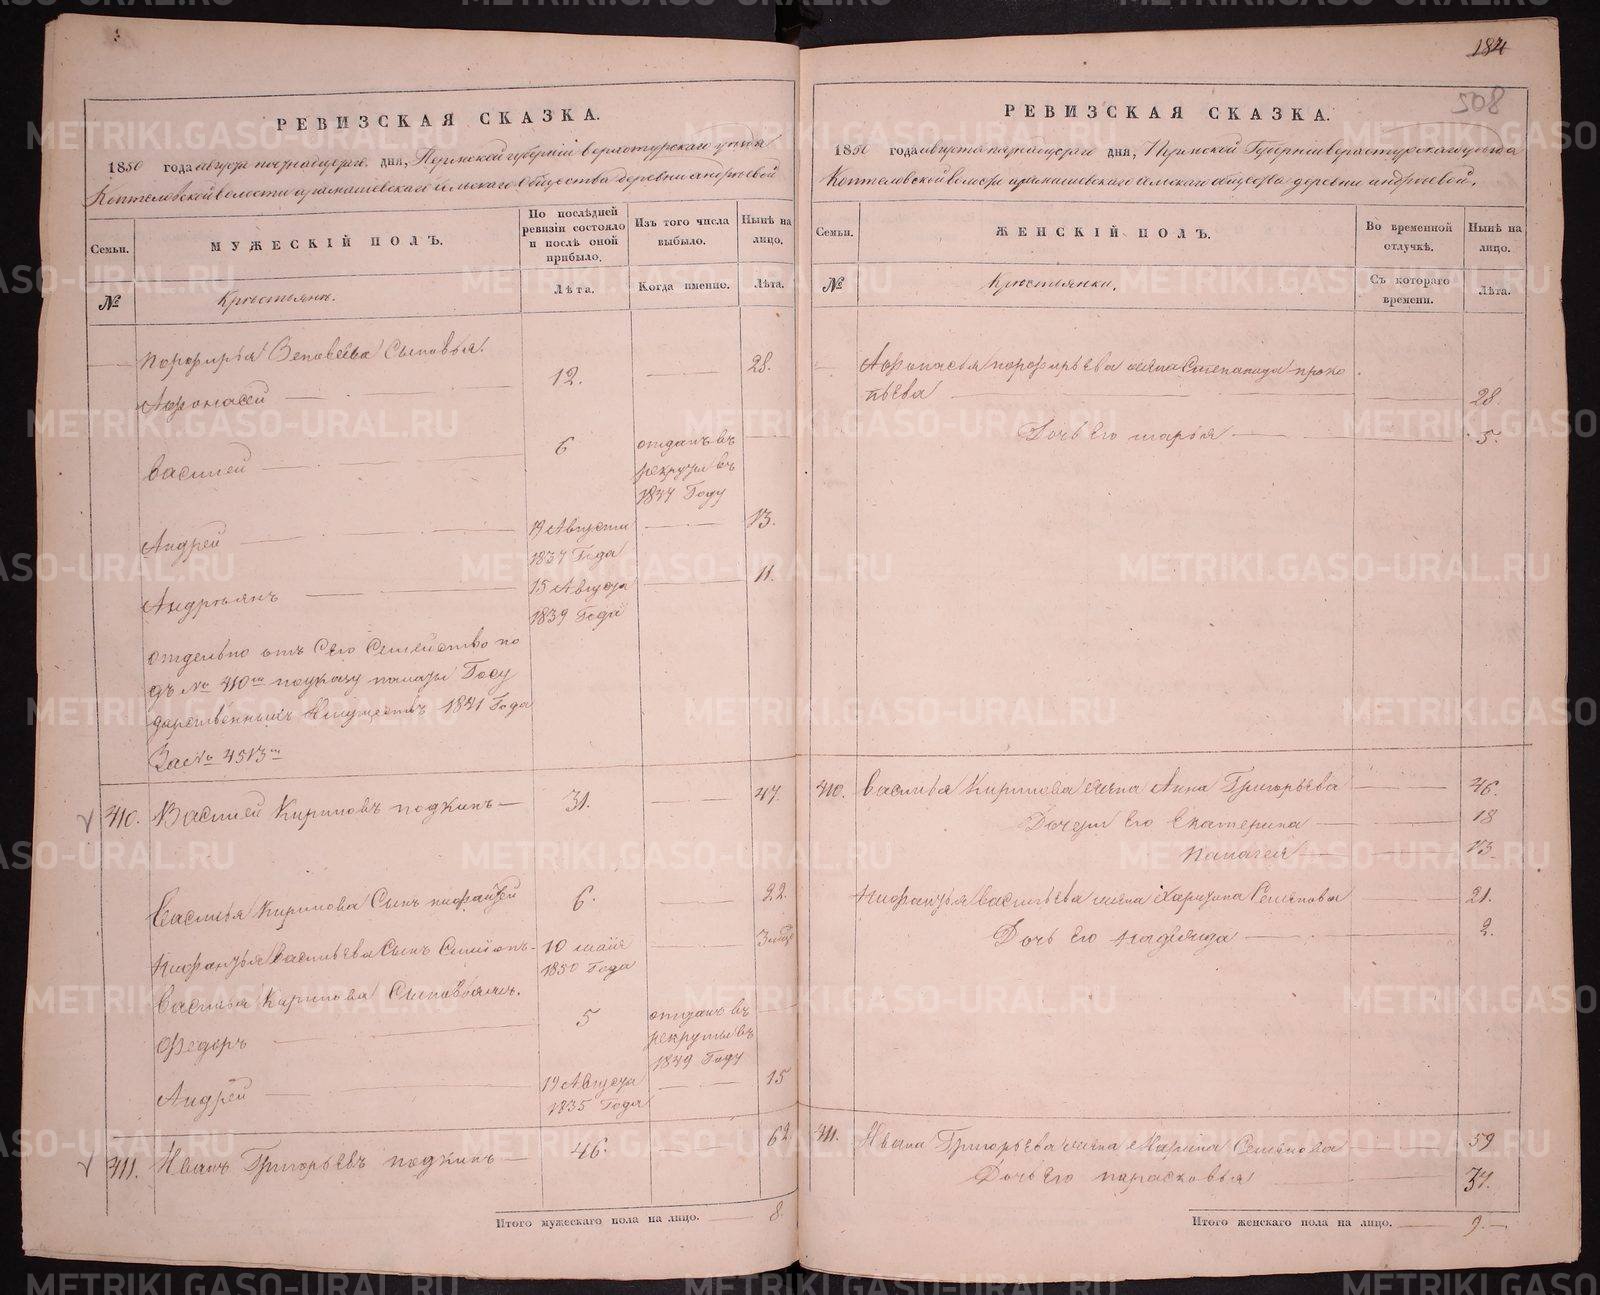 РЕВИЗСКАЯ СКАЗКА.
1850 года августа пятнадцатаго дня, Пермской губерніи верхотурскаго уезда
Коптеловской волости арамашевскаго сельскаго общества деревни андреевой
Семьи.
МУЖЕСКІЙ ПОЛЪ.
По послѣдней ревизіи состояло и послѣ оной прибыло.
Изъ того числа выбыло.
Нынѣ на лицо.
№
Крестьянъ.
Лѣта.
Когда именно.
Лѣта.
Порфирья Сыновья.
28.
Афонасей 12.
Василей 6 отданъ въ
рекруты въ
1847 Году
Андрей 19 Августа 13.
1837 Года
Андреянъ 15 Августа 11.
1839 Года
отдельно отъ Сего Семейство по
дъ № 410м по указу палаты Госу
дарственныхъ Имуществъ 1841 Года
За № 4513м
410. Василей Кириловъ подкинъ 31. 47.
Василья Кирилова Сынъ 6. 22.
Васильева Сынъ Семіонъ 10 майя
1850 Года
Василья Кирилова Сыновья
Федоръ 5 отданъ въ
рекруты въ
1849 Году
Андрей 19 Августа 15
1835 Года
411. Иванъ Григорьевъ подкинъ 46. 62
Итого мужескаго пола на лицо. 8.
184
508
РЕВИЗСКАЯ СКАЗКА.
1850 года августа пятнадцатаго дня, Пермской Губерніи верхотурскаго уезда
Коптеловской волости арамашевскаго сельскаго общества деревни андреевой.
Семьи.
ЖЕНСКІЙ ПОЛЪ.
Во временной отлучкѣ.
Нынѣ на лицо.
№
Крестьянки.
Съ котораго времени.
Лѣта.
Афонасья порфирьева жена Степанида проко
пьева 28.
Дочь Его марья 5.
410. Василья Кирилова жена Анна Григорьева 46.
Дочери Его Екатерина 18
Палагея 13
Васильева жена Харитина Семенова 21.
Дочь Его надежда 2.
411. Ивана Григорьева жена Марина Семенова 59
Дочь Его парасковья 34.
Итого женскаго пола на лицо. 9.
METRIKI.GASO-URAL.RU